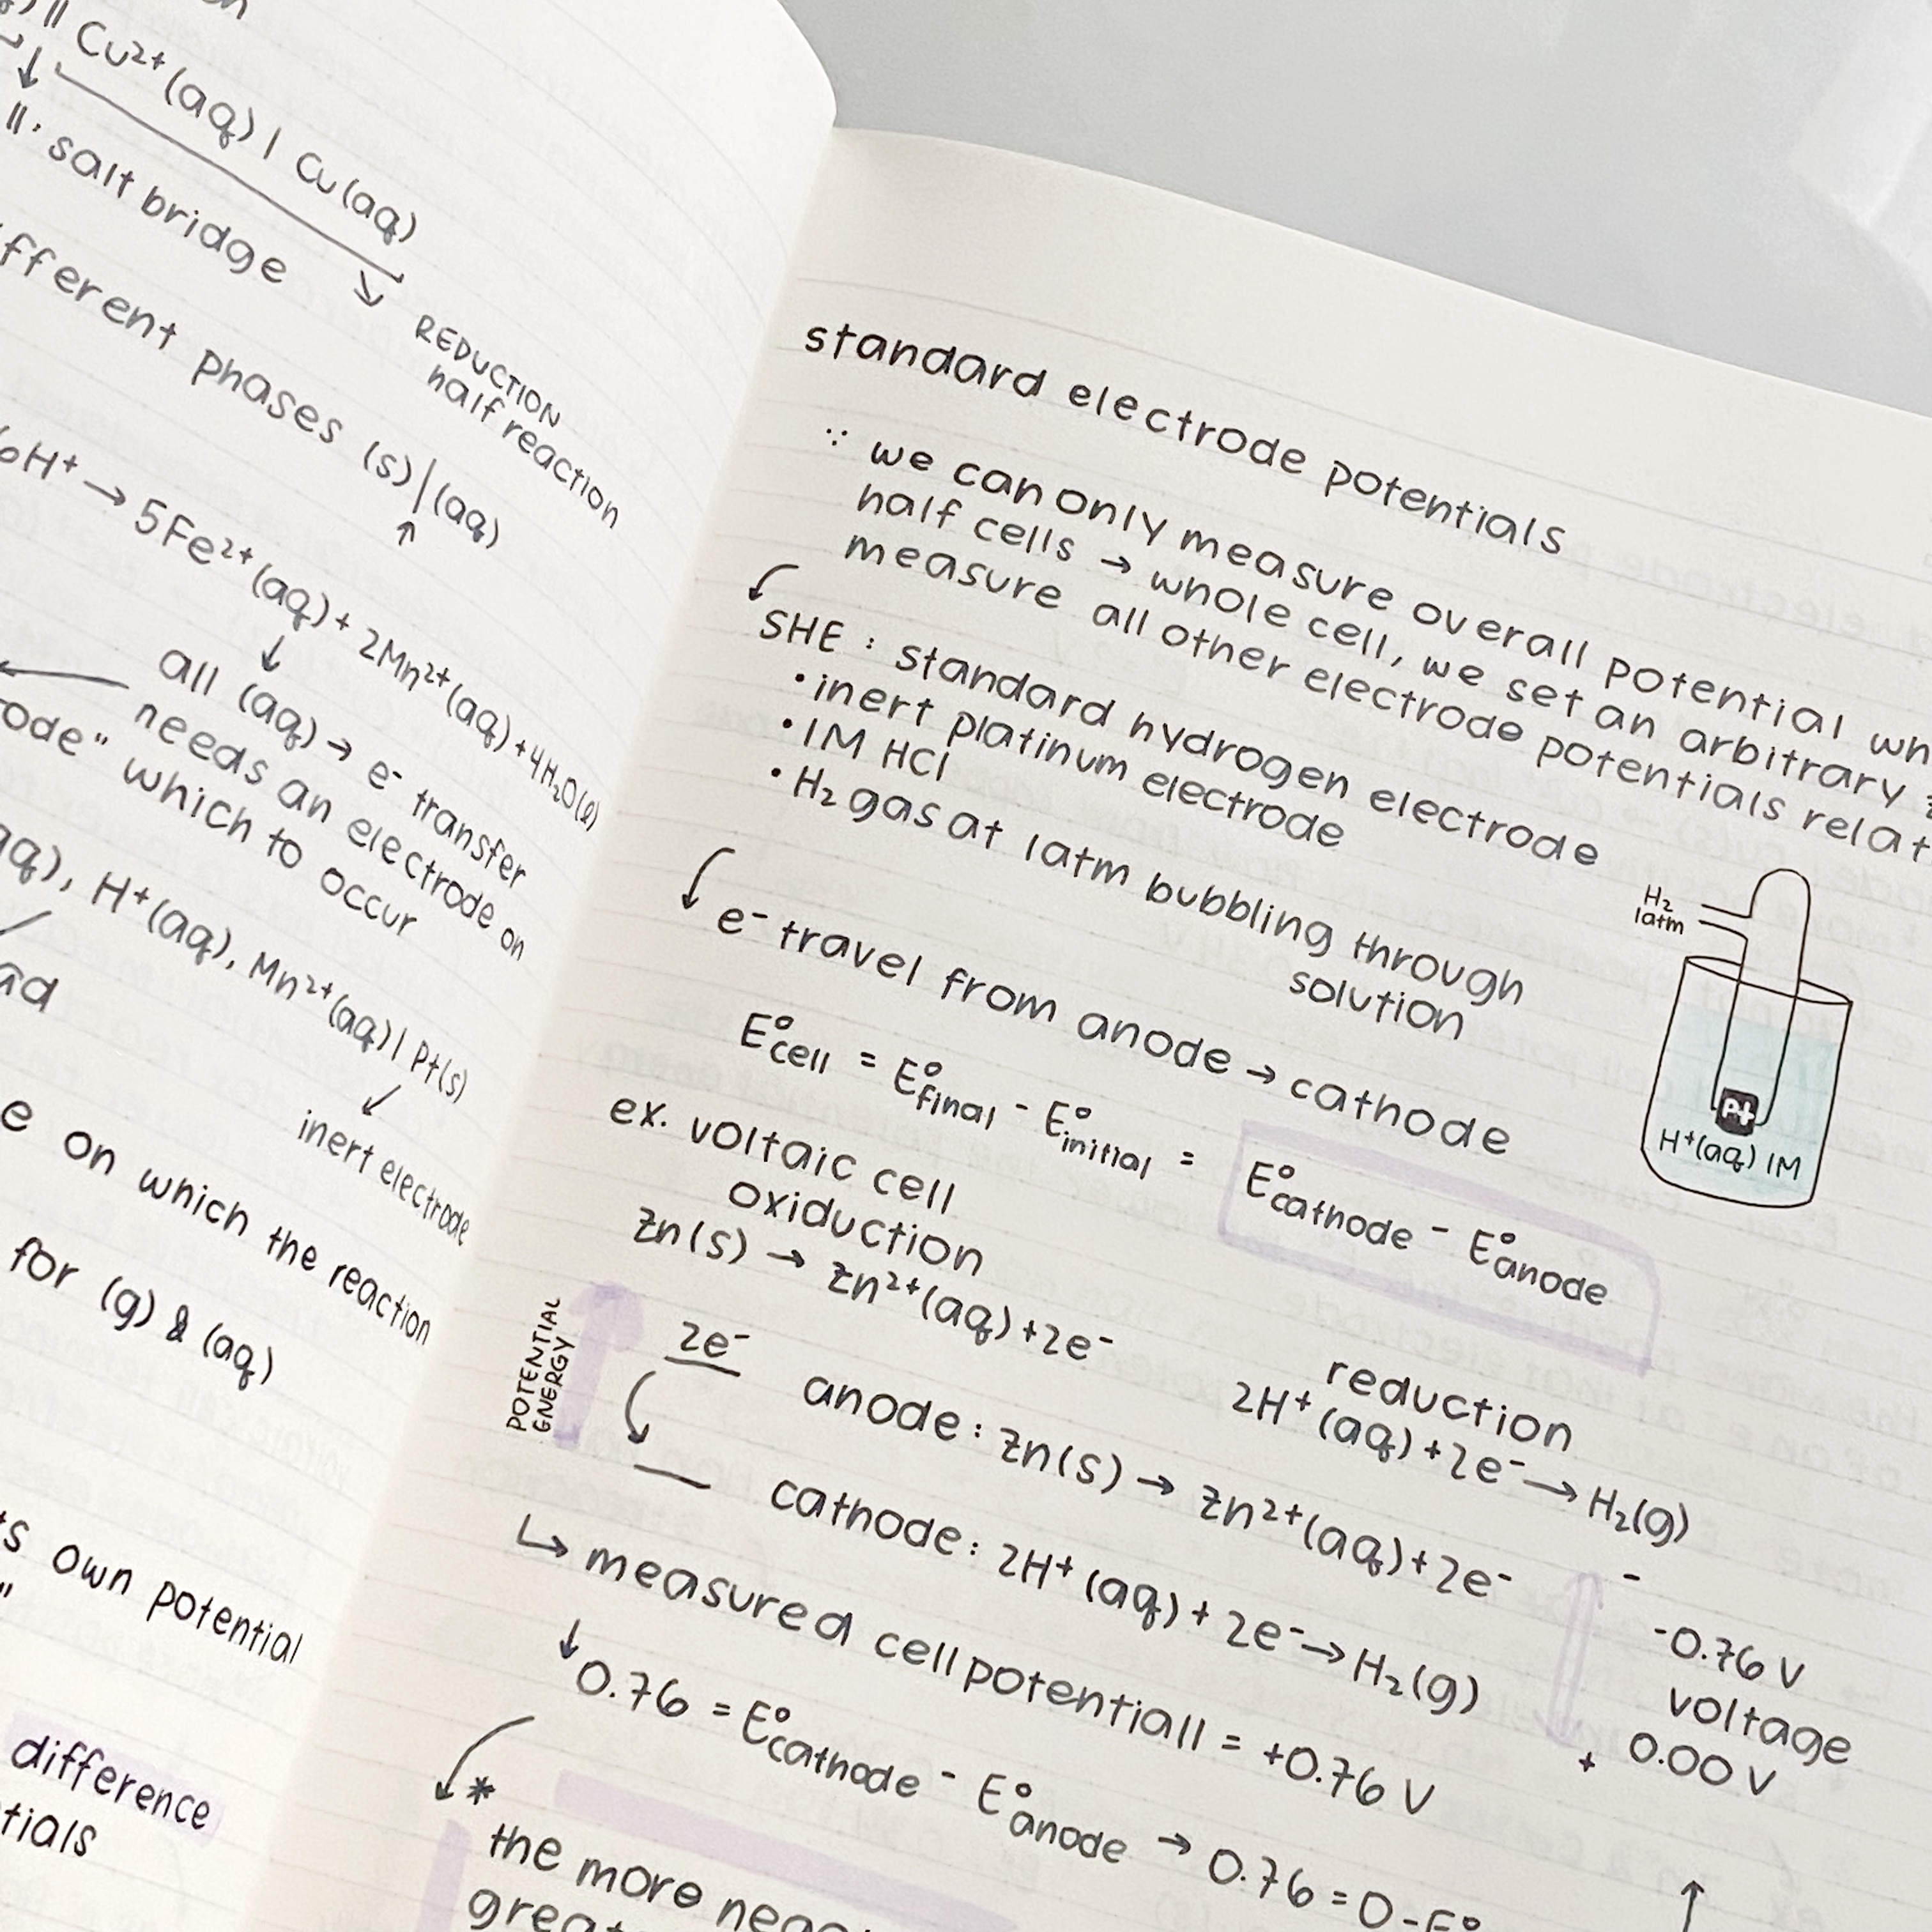 || Cu²⁺(aq) | Cu(aq)
||: salt bridge
REDUCTION
half reaction
phases (s)|(aq)
6H⁺ → 5Fe²⁺(aq) + 2Mn²⁺(aq) + 4H₂O(l)
all (aq) → e⁻ transfer
needs an electrode on
which to occur
H⁺(aq), Mn²⁺(aq) | Pt(s)
inert electrode
on which the reaction
for (g) & (aq)
own potential
difference
standard electrode potentials
∵ we can only measure overall potential
half cells → whole cell, we set an arbitrary
measure all other electrode potentials
SHE : standard hydrogen electrode
• inert platinum electrode
• 1M HCl
• H₂ gas at 1atm bubbling through
solution
H₂
1atm
Pt
H⁺(aq) 1M
e⁻ travel from anode → cathode
E°cell = E°final - E°initial = E°cathode - E°anode
ex. voltaic cell
oxiduction
Zn(s) → Zn²⁺(aq) + 2e⁻
reduction
2H⁺(aq) + 2e⁻ → H₂(g)
POTENTIAL
ENERGY
2e⁻
anode: Zn(s) → Zn²⁺(aq) + 2e⁻ - -0.76 V
voltage
cathode: 2H⁺(aq) + 2e⁻ → H₂(g) + 0.00 V
↳ measured cell potentiall = +0.76 V
↓ 0.76 = E°cathode - E°anode → 0.76 = 0 - E°
* the more